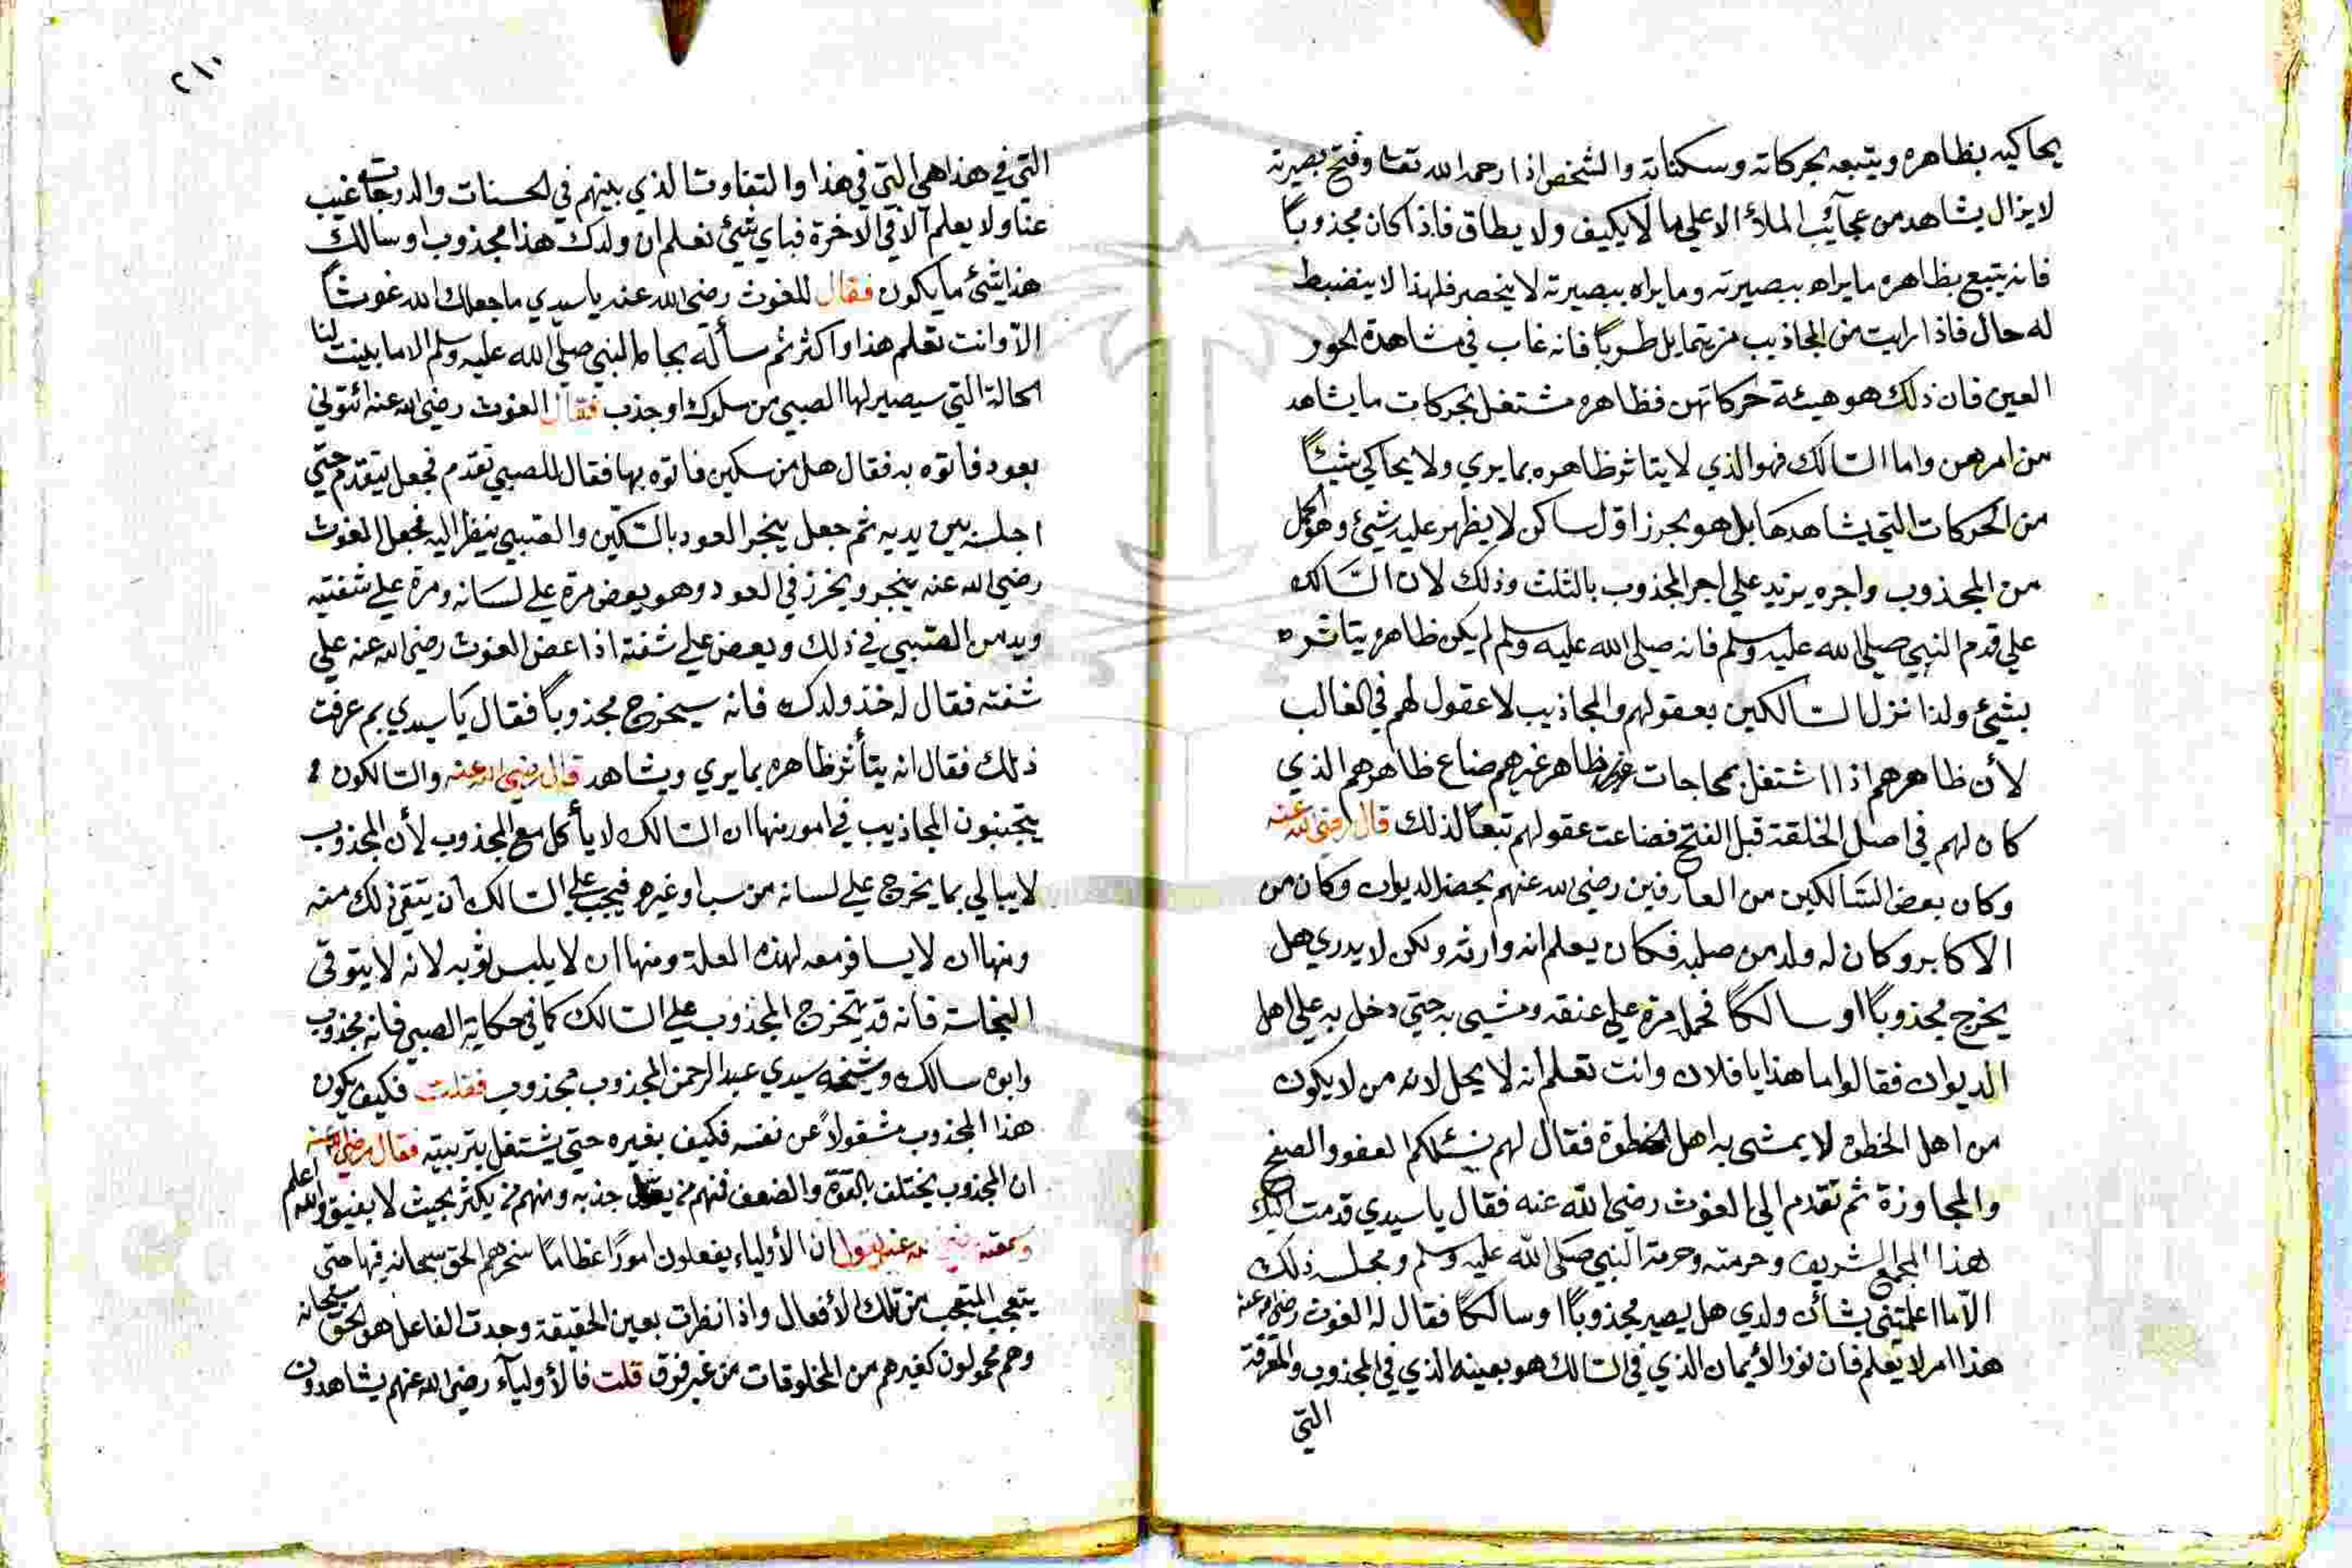 يحاكيه بظاهره ويتبعه بحركاته وسكناته والشخص اذا رحمه الله تعا وفتح بصيرته
لا يزال يشاهد من عجآئب الملأ الاعلي ما لا يكيف ولا يطاق فاذا كان مجذوباً
فانه يتبع بظاهره ما يراه ببصيرته وما يراه ببصيرته لا ينحصر فلهذا لا ينضبط
له حال فاذا رايت من المجاذيب من يتمايل طرباً فانه غاب في مشاهدة الحور
العين فان ذلك هو هيئة حركاتهن فظاهره مشتغل بحركات ما يشاهد
من امرهن واما السالك فهو الذي لا يتاثر ظاهره بما يري ولا يحاكي شيئاً
من الحركات التي يشاهدها بل هو بحر زاقل ساكن لا يظهر عليه شيئ وهو اكمل
من المجذوب واجره يزيد علي اجر المجذوب بالثلث وذلك لان السَّالك
علي قدم النبي صلي الله عليه وسلم فانه صلي الله عليه وسلم لم يكن ظاهره يتاثره
بشيئ ولذا نزل السالكين بعقولهم والمجاذيب لا عقول لهم في الغالب
لأن ظاهرهم اذا اشتغل بمحاجات ظاهر غيرهم ضاع ظاهرهم الذي
كان لهم في اصل الخلقة قبل الفتح فضاعت عقولهم تبعاً لذلك قال رضي الله عنه
وكان بعض السَّالكين من العارفين رضي الله عنهم يحضر الديوان وكان من
الاكابر وكان له ولد من صلبه فكان يعلم انه وارثه ولكن لا يدري هل
يخرج مجذوباً او سالكاً فحمله مرة علي عنقه ومشي به حتي دخل به علي اهل
الديوان فقالوا ما هذا يا فلان وانت تعلم انه لا يحل لانه من لا يكون
من اهل الخطوة لا يمشي به اهل الخطوة فقال لهم نسئلكم العفو والصفح
والمجاوزة ثم تقدم الي الغوث رضي الله عنه فقال يا سيدي قدمت اليك
هذا المجمع الشريف وحرمته وحرمة النبي صلي الله عليه وسلم ومجلسه ذلك
الّا ما اعلمتني بشأن ولدي هل يصير مجذوباً او سالكاً فقال له الغوث رضي الله عنه
هذا امر لا يعلم فان نور الأيمان الذي في السالك هو بعينه الذي في المجذوب والمعرفة
التي
٢١٠
التي في هذا هي التي في هذا والتفاوت الذي بينهم في الحسنات والدرجات غيب
عنا ولا يعلم الا في الآخرة فباي شيئ نعلم ان ولدك هذا مجذوب او سالك
هذا شيئ ما يكون فقال للغوث رضي الله عنه يا سيدي ما جعلك الله غوثاً
الّا وانت تعلم هذا واكثر ثم سأله بجاه النبي صلي الله عليه وسلم الا ما بينت لنا
الحالة التي سيصير لها الصبي من سلوك او جذب فقال الغوث رضي الله عنه ائتوني
بعود فأتوه به فقال هل من سكين فأتوه بها فقال للصبي تقدم فجعل يتقدم حتي
اجلسه بين يديه ثم جعل ينجر العود بالسكّين والصبي ينظر اليه فجعل الغوث
رضي الله عنه ينجر ويخرز في العود وهو يعض مرة علي لسَانه ومرة علي شفتيه
ويد من الصبي في ذلك ويعض علي شفته اذا عض الغوث رضي الله عنه علي
شفته فقال له خذ ولدك فانه سيخرج مجذوباً فقال يا سيدي بم عرفت
ذلك فقال انه يتأثر ظاهره بما يري ويشاهد قال رضي الله عنه والسالكون
يتجنبون المجاذيب في امور منها ان السالك لا يأكل مع المجذوب لأن المجذوب
لا يبالي بما يخرج علي لسانه من سب او غيره فيجب علي السالك أن يتقي ذلك منه
ومنها ان لا يسافر معه لهذه العلة ومنها ان لا يلبس ثوبه لانه لا يتوقي
النجاسة فانه قد يتخرج المجذوب علي السالك كما في حكاية الصبي فانه مجذوب
وابوه سالك وشيخه سيدي عبد الرحمن المجذوب مجذوب فقلت فكيف يكون
هذا المجذوب مشغولاً عن نفسه فكيف بغيره حتي يشتغل بتربيته فقال رضي الله عنه
ان المجذوب يختلف بالقوة والضعف فمنهم من يقل جذبه ومنهم من يكثر بحيث لا يفيق والله اعلم
وسمعته رضي الله عنه يقول ان الأولياء يفعلون اموراً عظاماً سخرهم الحق سبحانه فيها حتي
يتعجب المتعجب من تلك الأفعال واذا نظرت بعين الحقيقة وجدت الفاعل هو الحق سبحانه
وهم محمولون كغيرهم من المخلوقات من غير فرق قلت فالأوليآء رضي الله عنهم يشاهدون